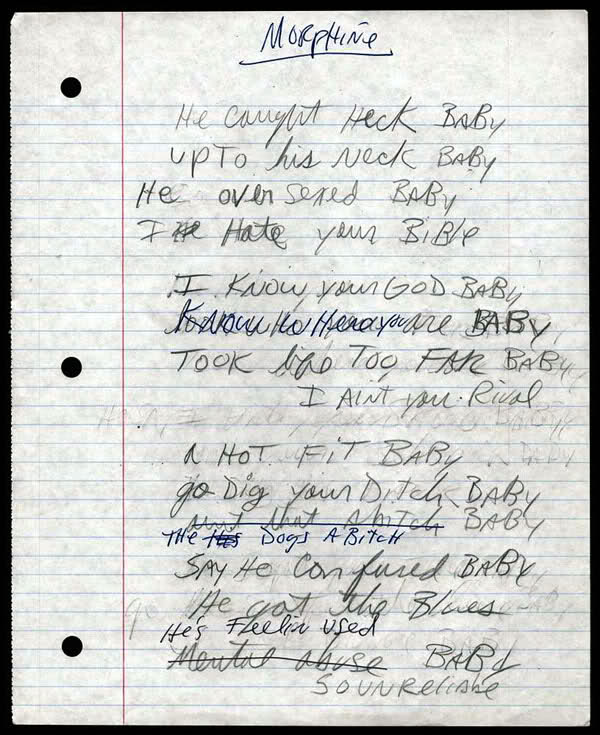 Morphine
He caught Heck BABy
upTo his Neck BABy
He over sexed BABy
I Hate your BiBle
I Know your GOD BABy
Know Who Here you are BABy
TOOK life Too FAR BABy
I Aint your Rival
A HoT FiT BABy
go Dig your Ditch BABy
aint that A bitch BABy
THe Dogs A Bitch
SAy He Confused BABy
He got the Blues
He's Feelin Used
Mental abuse BABy
SO UNReliABle